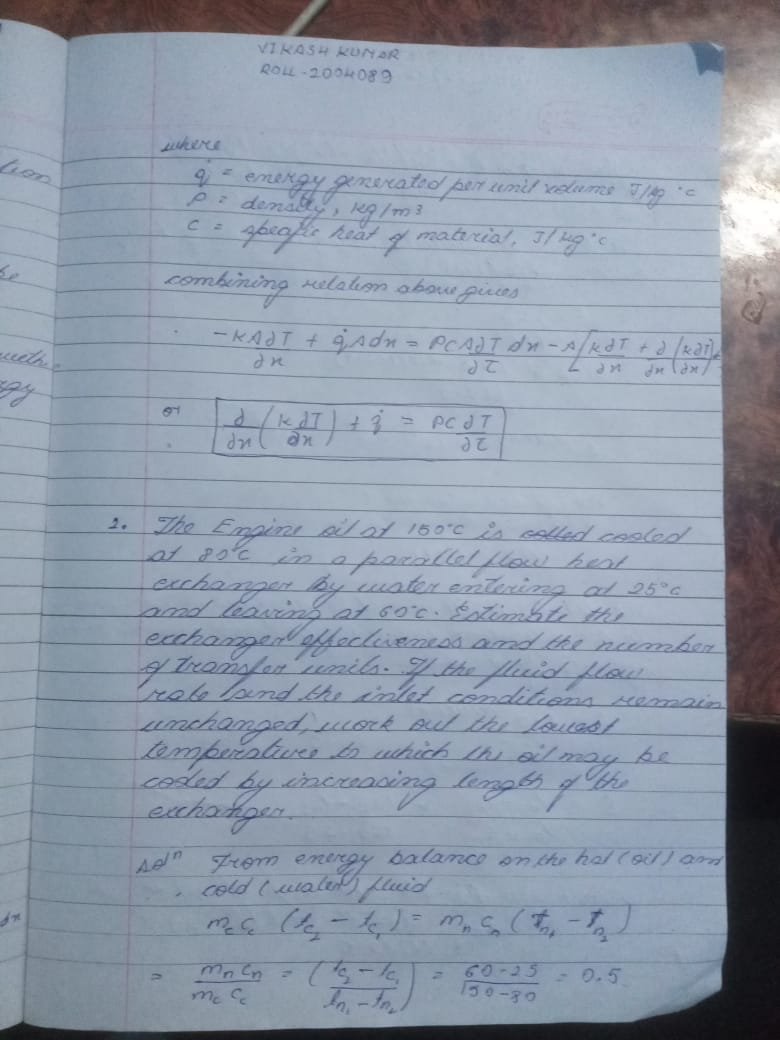 VIKASH KUMAR
ROLL-2004089
where
q̇ = energy generated per unit volume J/kg °c
ρ = density, kg/m3
c = specific heat of material, J/kg°c
combining relation above gives
-KA∂T/∂x + q̇Adx = ρCA∂T/∂τ dx - A[K∂T/∂x + ∂/∂x(K∂T/∂x)
or ∂/∂x (K∂T/∂x) + q̇ = ρC∂T/∂τ
2. The Engine oil at 150°c is cooled
at 80°c in a parallel flow heat
exchanger by water entering at 25°c
and leaving at 60°c. Estimate the
exchanger effectiveness and the number
of transfer units. If the fluid flow
rate and the inlet conditions remain
unchanged, work out the lowest
temperature to which the oil may be
cooled by increasing length of the
exchanger.
Solⁿ From energy balance on the hot (oil) and
cold (water) fluid
m_c c_c (t_c2 - t_c1) = m_n c_n (t_n1 - t_n2)
= m_n c_n / m_c c_c = (t_c2 - t_c1 / t_n1 - t_n2) = 60-25 / 150-80 = 0.5
tion
be
gy
dx